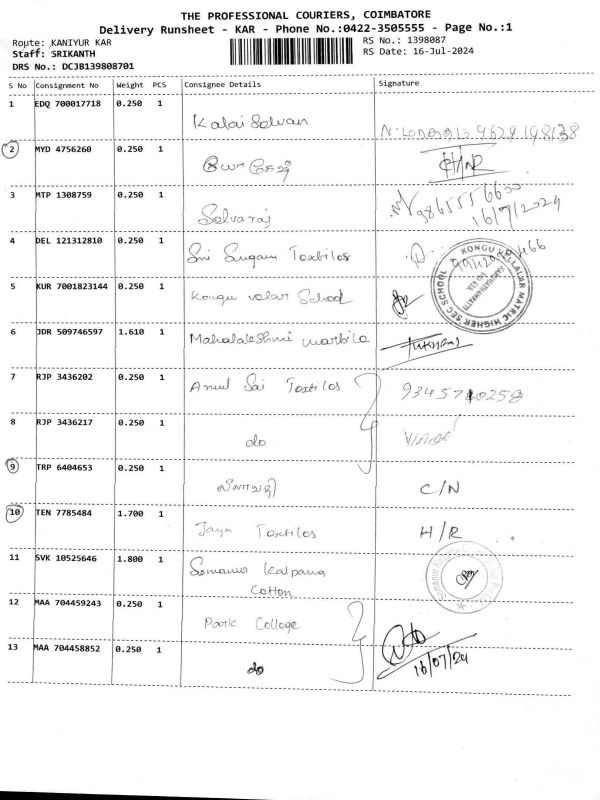 THE PROFESSIONAL COURIERS, COIMBATORE
Delivery Runsheet - KAR - Phone No.:0422-3505555 - Page No.:1
Route: KANIYUR KAR
Staff: SRIKANTH
DRS No.: DCJB139808701
RS No.: 1398087
RS Date: 16-Jul-2024
S No Consignment No Weight PCS Consignee Details Signature
1 EDQ 700017718 0.250 1 Kalai Selvan 9629198138
2 MYD 4756260 0.250 1
3 MTP 1308759 0.250 1 Selvaraj
16/7/2024
4 DEL 121312810 0.250 1 Sri Sugam Textilos
5 KUR 7001823144 0.250 1 Kongu velar School
KONGU VELLALAR MATRIC HIGHER SEC SCHOOL
6 JDR 509746597 1.610 1 Mahalakshmi marbils
7 RJP 3436202 0.250 1 Arul Sai Textilos
8 RJP 3436217 0.250 1 do
9 TRP 6404653 0.250 1 C/N
10 TEN 7785484 1.700 1 Jaya Textilos H/R
11 SVK 10525646 1.800 1 Somanur Kalpana
Cotton
12 MAA 704459243 0.250 1 Park College
13 MAA 704458852 0.250 1 do 16/07/24